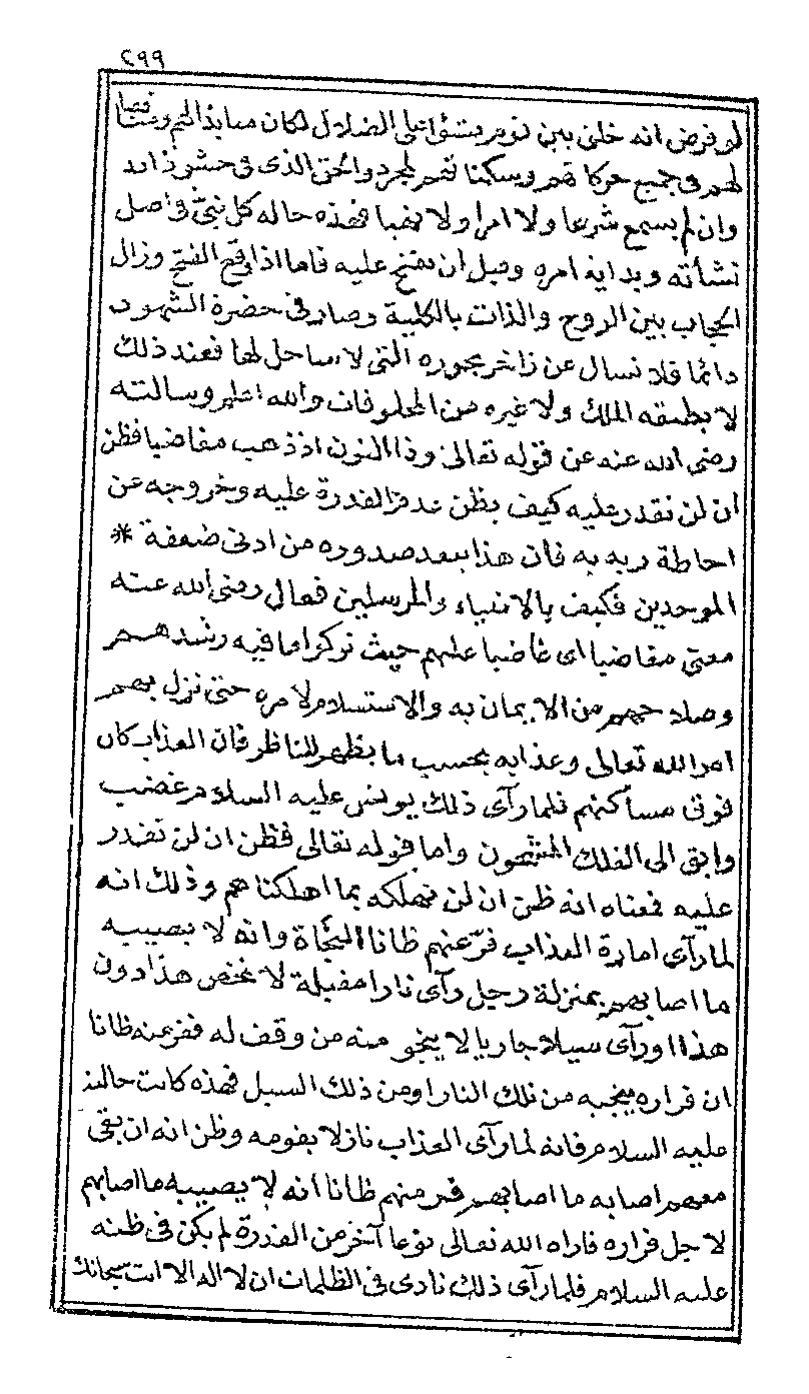 ٢٩٩
لو فرض انه خلق بين قوم ينشؤا على الضلال لكان منابذا لهم ومناقضا
لهم في جميع حركاتهم وسكناتهم لمجرد الحق الذي في حشو ذاته
وان لم يسمع شرعا ولا امرا ولا نهيا فهذه حاله كل نبي في اصل
نشأته وبداية امره وقبل ان يفتح عليه فاما اذا وقع الفتح وزال
الحجاب بين الروح والذات بالكلية وصار في حضرة الشهود
دائما فلا تسال عن زاخر بحوره التي لا ساحل لها فعند ذلك
لا يطيقه الملك ولا غيره من المخلوقات والله اعلم وسالته
رضي الله عنه عن قوله تعالى وذا النون اذ ذهب مغاضبا فظن
ان لن نقدر عليه كيف يظن عدم القدرة عليه وخروجه عن
احاطة ربه به فان هذا يبعد صدوره من ادنى ضعفة *
الموحدين فكيف بالانبياء والمرسلين فقال رضي الله عنه
معنى مغاضبا اى غاضبا عليهم حيث تركوا ما فيه رشدهم
وصلاحهم من الايمان به والاستسلام لامره حتى نزل بهم
امر الله تعالى وعذابه بحسب ما يظهر للناظر فان العذاب كان
فوق مساكنهم فلما رآى ذلك يونس عليه السلام غضب
وابق الى الفلك المشحون واما قوله تعالى فظن ان لن نقدر
عليه فمعناه انه ظن ان لن نهلكه بما اهلكناهم وذلك انه
لما رآى امارة العذاب فرّ عنهم ظانا النجاة وانه لا يصيبه
ما اصابهم بمنزلة رجل رآى نارا مقبلة لا تخص هذا دون
هذا او رآى سيلا جاريا لا ينجو منه من وقف له ففر عنه ظانا
ان فراره ينجيه من تلك النار او من ذلك السيل فهذه كانت حالته
عليه السلام فانه لما رآى العذاب نازلا بقومه وظن انه ان بقى
معهم اصابه ما اصابهم فر منهم ظانا انه لا يصيبه ما اصابهم
لاجل فراره فاراه الله تعالى نوعا آخر من القدرة لم يكن في ظنه
عليه السلام فلما رآى ذلك نادى في الظلمات ان لا اله الا انت سبحانك